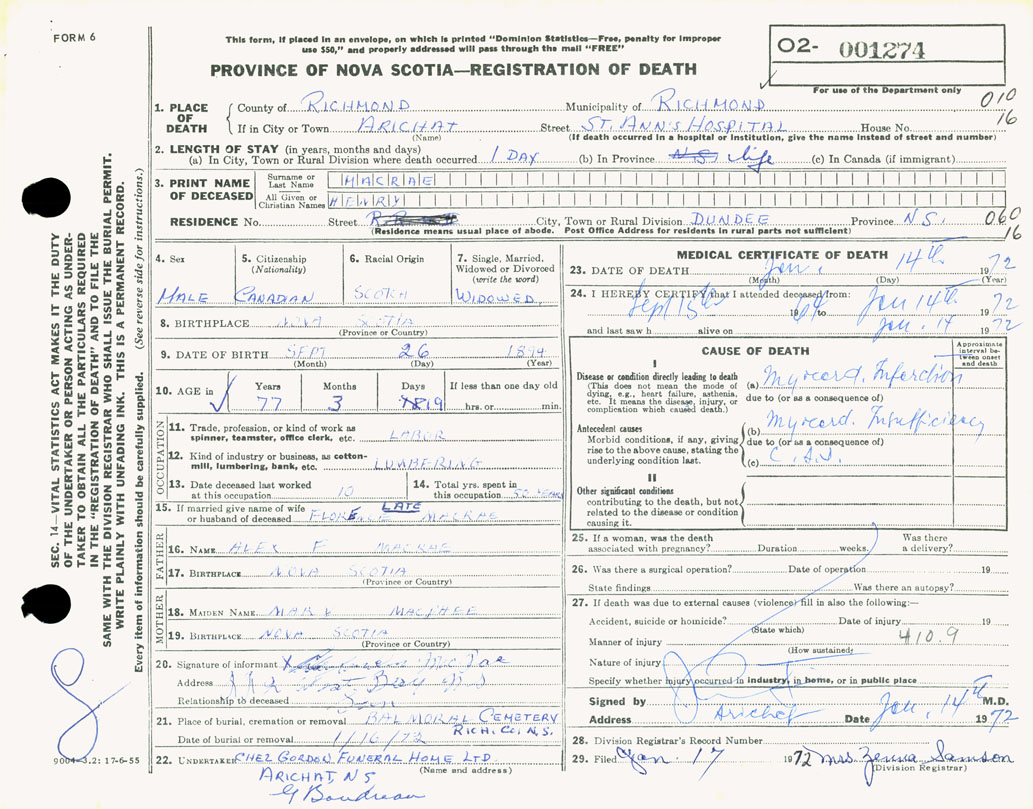 FORM 6
This form, if placed in an envelope, on which is printed "Dominion Statistics—Free, penalty for improper
use $50," and properly addressed will pass through the mail "FREE"
O2- 001274
PROVINCE OF NOVA SCOTIA—REGISTRATION OF DEATH
For use of the Department only
1. PLACE OF DEATH County of RICHMOND Municipality of RICHMOND 010
If in City or Town ARICHAT Street ST. ANN'S HOSPITAL House No. 16
(Name) (If death occurred in a hospital or institution, give the name instead of street and number)
2. LENGTH OF STAY (in years, months and days)
(a) In City, Town or Rural Division where death occurred 1 DAY (b) In Province N.S. life (c) In Canada (if immigrant)
3. PRINT NAME OF DECEASED Surname or Last Name MACRAE
All Given or Christian Names HENRY
RESIDENCE No. Street City, Town or Rural Division DUNDEE Province N.S. 060
(Residence means usual place of abode. Post Office Address for residents in rural parts not sufficient) 16
4. Sex 5. Citizenship (Nationality) 6. Racial Origin 7. Single, Married, Widowed or Divorced (write the word)
MALE CANADIAN SCOTCH WIDOWED
8. BIRTHPLACE NOVA SCOTIA
(Province or Country)
9. DATE OF BIRTH SEPT 26 1894
(Month) (Day) (Year)
10. AGE in Years Months Days If less than one day old
77 3 19 hrs. or min.
OCCUPATION
11. Trade, profession, or kind of work as spinner, teamster, office clerk, etc. LABOR
12. Kind of industry or business, as cotton-mill, lumbering, bank, etc. LUMBERING
13. Date deceased last worked at this occupation 10 14. Total yrs. spent in this occupation 50 YEARS
15. If married give name of wife or husband of deceased LATE FLORENCE MACRAE
FATHER
16. NAME ALEX F MACRAE
17. BIRTHPLACE NOVA SCOTIA
(Province or Country)
MOTHER
18. MAIDEN NAME MARY MACPHEE
19. BIRTHPLACE NOVA SCOTIA
(Province or Country)
20. Signature of informant X
Address West Bay
Relationship to deceased Son
21. Place of burial, cremation or removal BALMORAL CEMETERY
RICH. CO, N.S.
Date of burial or removal 1/16/72
22. UNDERTAKER CHEZ GORDON FUNERAL HOME LTD
(Name and address)
ARICHAT, NS
G Boudreau
9004-3.2: 17-6-55
MEDICAL CERTIFICATE OF DEATH
23. DATE OF DEATH Jan. 14th 1972
(Month) (Day) (Year)
24. I HEREBY CERTIFY that I attended deceased from:
Sept 15th 19 to Jan 14th 1972
and last saw h alive on Jan. 14 1972
CAUSE OF DEATH
Approximate interval between onset and death
I
Disease or condition directly leading to death
(This does not mean the mode of dying, e.g., heart failure, asthenia, etc. It means the disease, injury, or complication which caused death.)
(a) Myocard. Infarction
due to (or as a consequence of)
Antecedent causes
Morbid conditions, if any, giving rise to the above cause, stating the underlying condition last.
(b) Myocard. Insufficiency
due to (or as a consequence of)
(c)
II
Other significant conditions
contributing to the death, but not related to the disease or condition causing it.
25. If a woman, was the death associated with pregnancy? Duration weeks. Was there a delivery?
26. Was there a surgical operation? Date of operation 19
State findings Was there an autopsy?
27. If death was due to external causes (violence) fill in also the following:—
Accident, suicide or homicide? Date of injury 19
(State which)
Manner of injury 410.9
(How sustained)
Nature of injury
Specify whether injury occurred in industry, in home, or in public place
Signed by M.D.
Address Arichat Date Jan. 14th 1972
28. Division Registrar's Record Number
29. Filed Jan. 17 1972 Mrs Samson
(Division Registrar)
SEC. 14—VITAL STATISTICS ACT MAKES IT THE DUTY
OF THE UNDERTAKER OR PERSON ACTING AS UNDER-
TAKER TO OBTAIN ALL THE PARTICULARS REQUIRED
IN THE "REGISTRATION OF DEATH" AND TO FILE THE
SAME WITH THE DIVISION REGISTRAR WHO SHALL ISSUE THE BURIAL PERMIT.
WRITE PLAINLY WITH UNFADING INK. THIS IS A PERMANENT RECORD.
Every item of information should be carefully supplied. (See reverse side for instructions.)